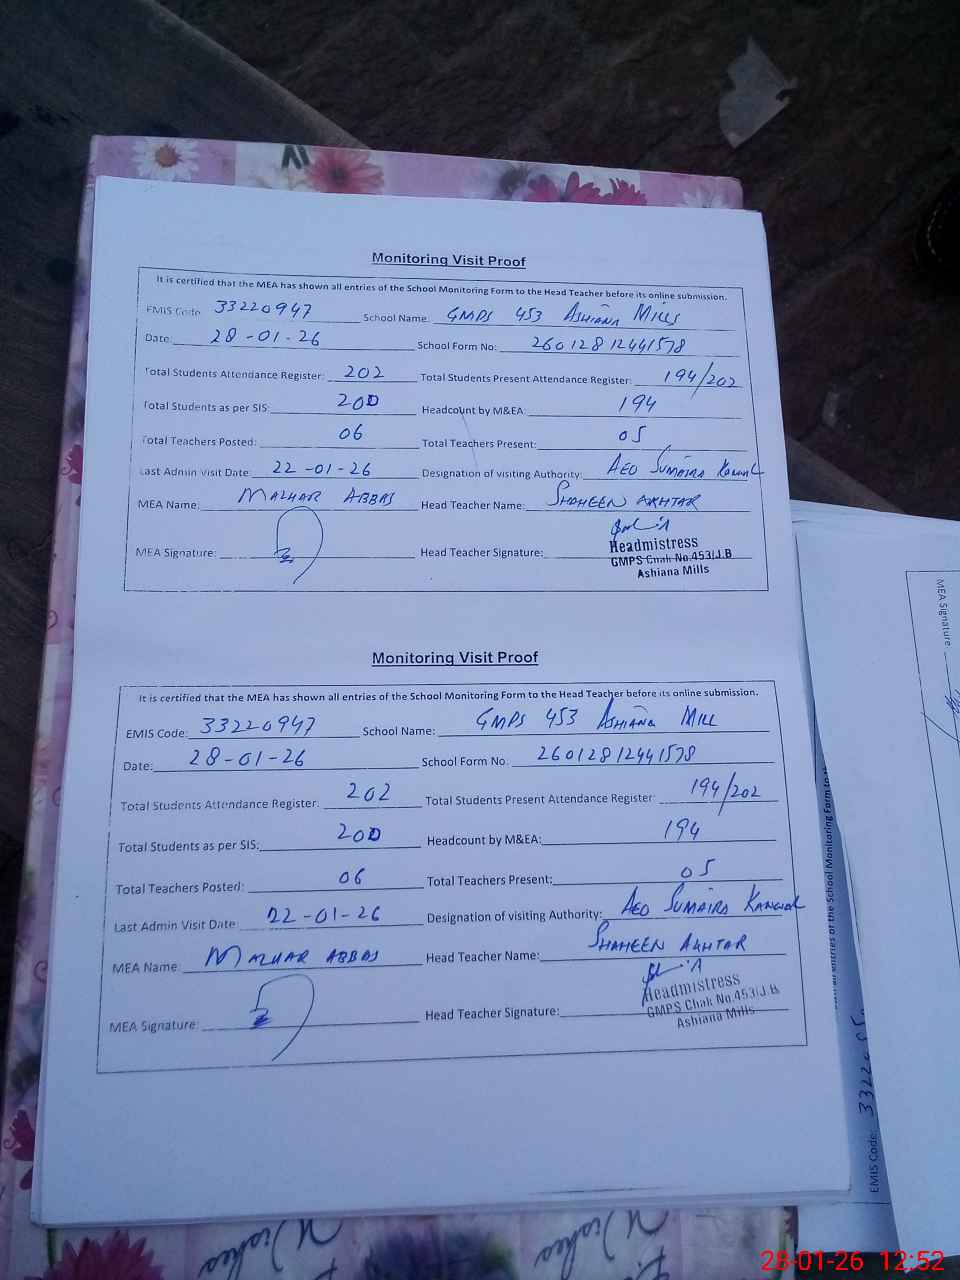 Monitoring Visit Proof
It is certified that the MEA has shown all entries of the School Monitoring Form to the Head Teacher before its online submission.
EMIS Code: 33220947 School Name: GMPS 453 ASHIANA MILLS
Date: 28-01-26 School Form No: 26012812441578
Total Students Attendance Register: 202 Total Students Present Attendance Register: 194/202
Total Students as per SIS: 200 Headcount by M&EA: 194
Total Teachers Posted: 06 Total Teachers Present: 05
Last Admin Visit Date: 22-01-26 Designation of visiting Authority: AEO SUMAIRA KANWAL
MEA Name: MAZHAR ABBAS Head Teacher Name: SHAHEEN AKHTAR
MEA Signature: Head Teacher Signature:
Headmistress
GMPS Chak No.453/J.B
Ashiana Mills
Monitoring Visit Proof
It is certified that the MEA has shown all entries of the School Monitoring Form to the Head Teacher before its online submission.
EMIS Code: 33220947 School Name: GMPS 453 ASHIANA MILL
Date: 28-01-26 School Form No. 26012812441578
Total Students Attendance Register: 202 Total Students Present Attendance Register: 194/202
Total Students as per SIS: 200 Headcount by M&EA: 194
Total Teachers Posted: 06 Total Teachers Present: 05
Last Admin Visit Date 22-01-26 Designation of visiting Authority: AEO SUMAIRA KANWAL
MEA Name: MAZHAR ABBAS Head Teacher Name: SHAHEEN AKHTAR
MEA Signature: Head Teacher Signature:
Headmistress
GMPS Chak No.453/J.B
Ashiana Mills
MEA Signature
all entries of the School Monitoring Form to
EMIS Code: 3322
Wishes
Wishes
28-01-26 12:52